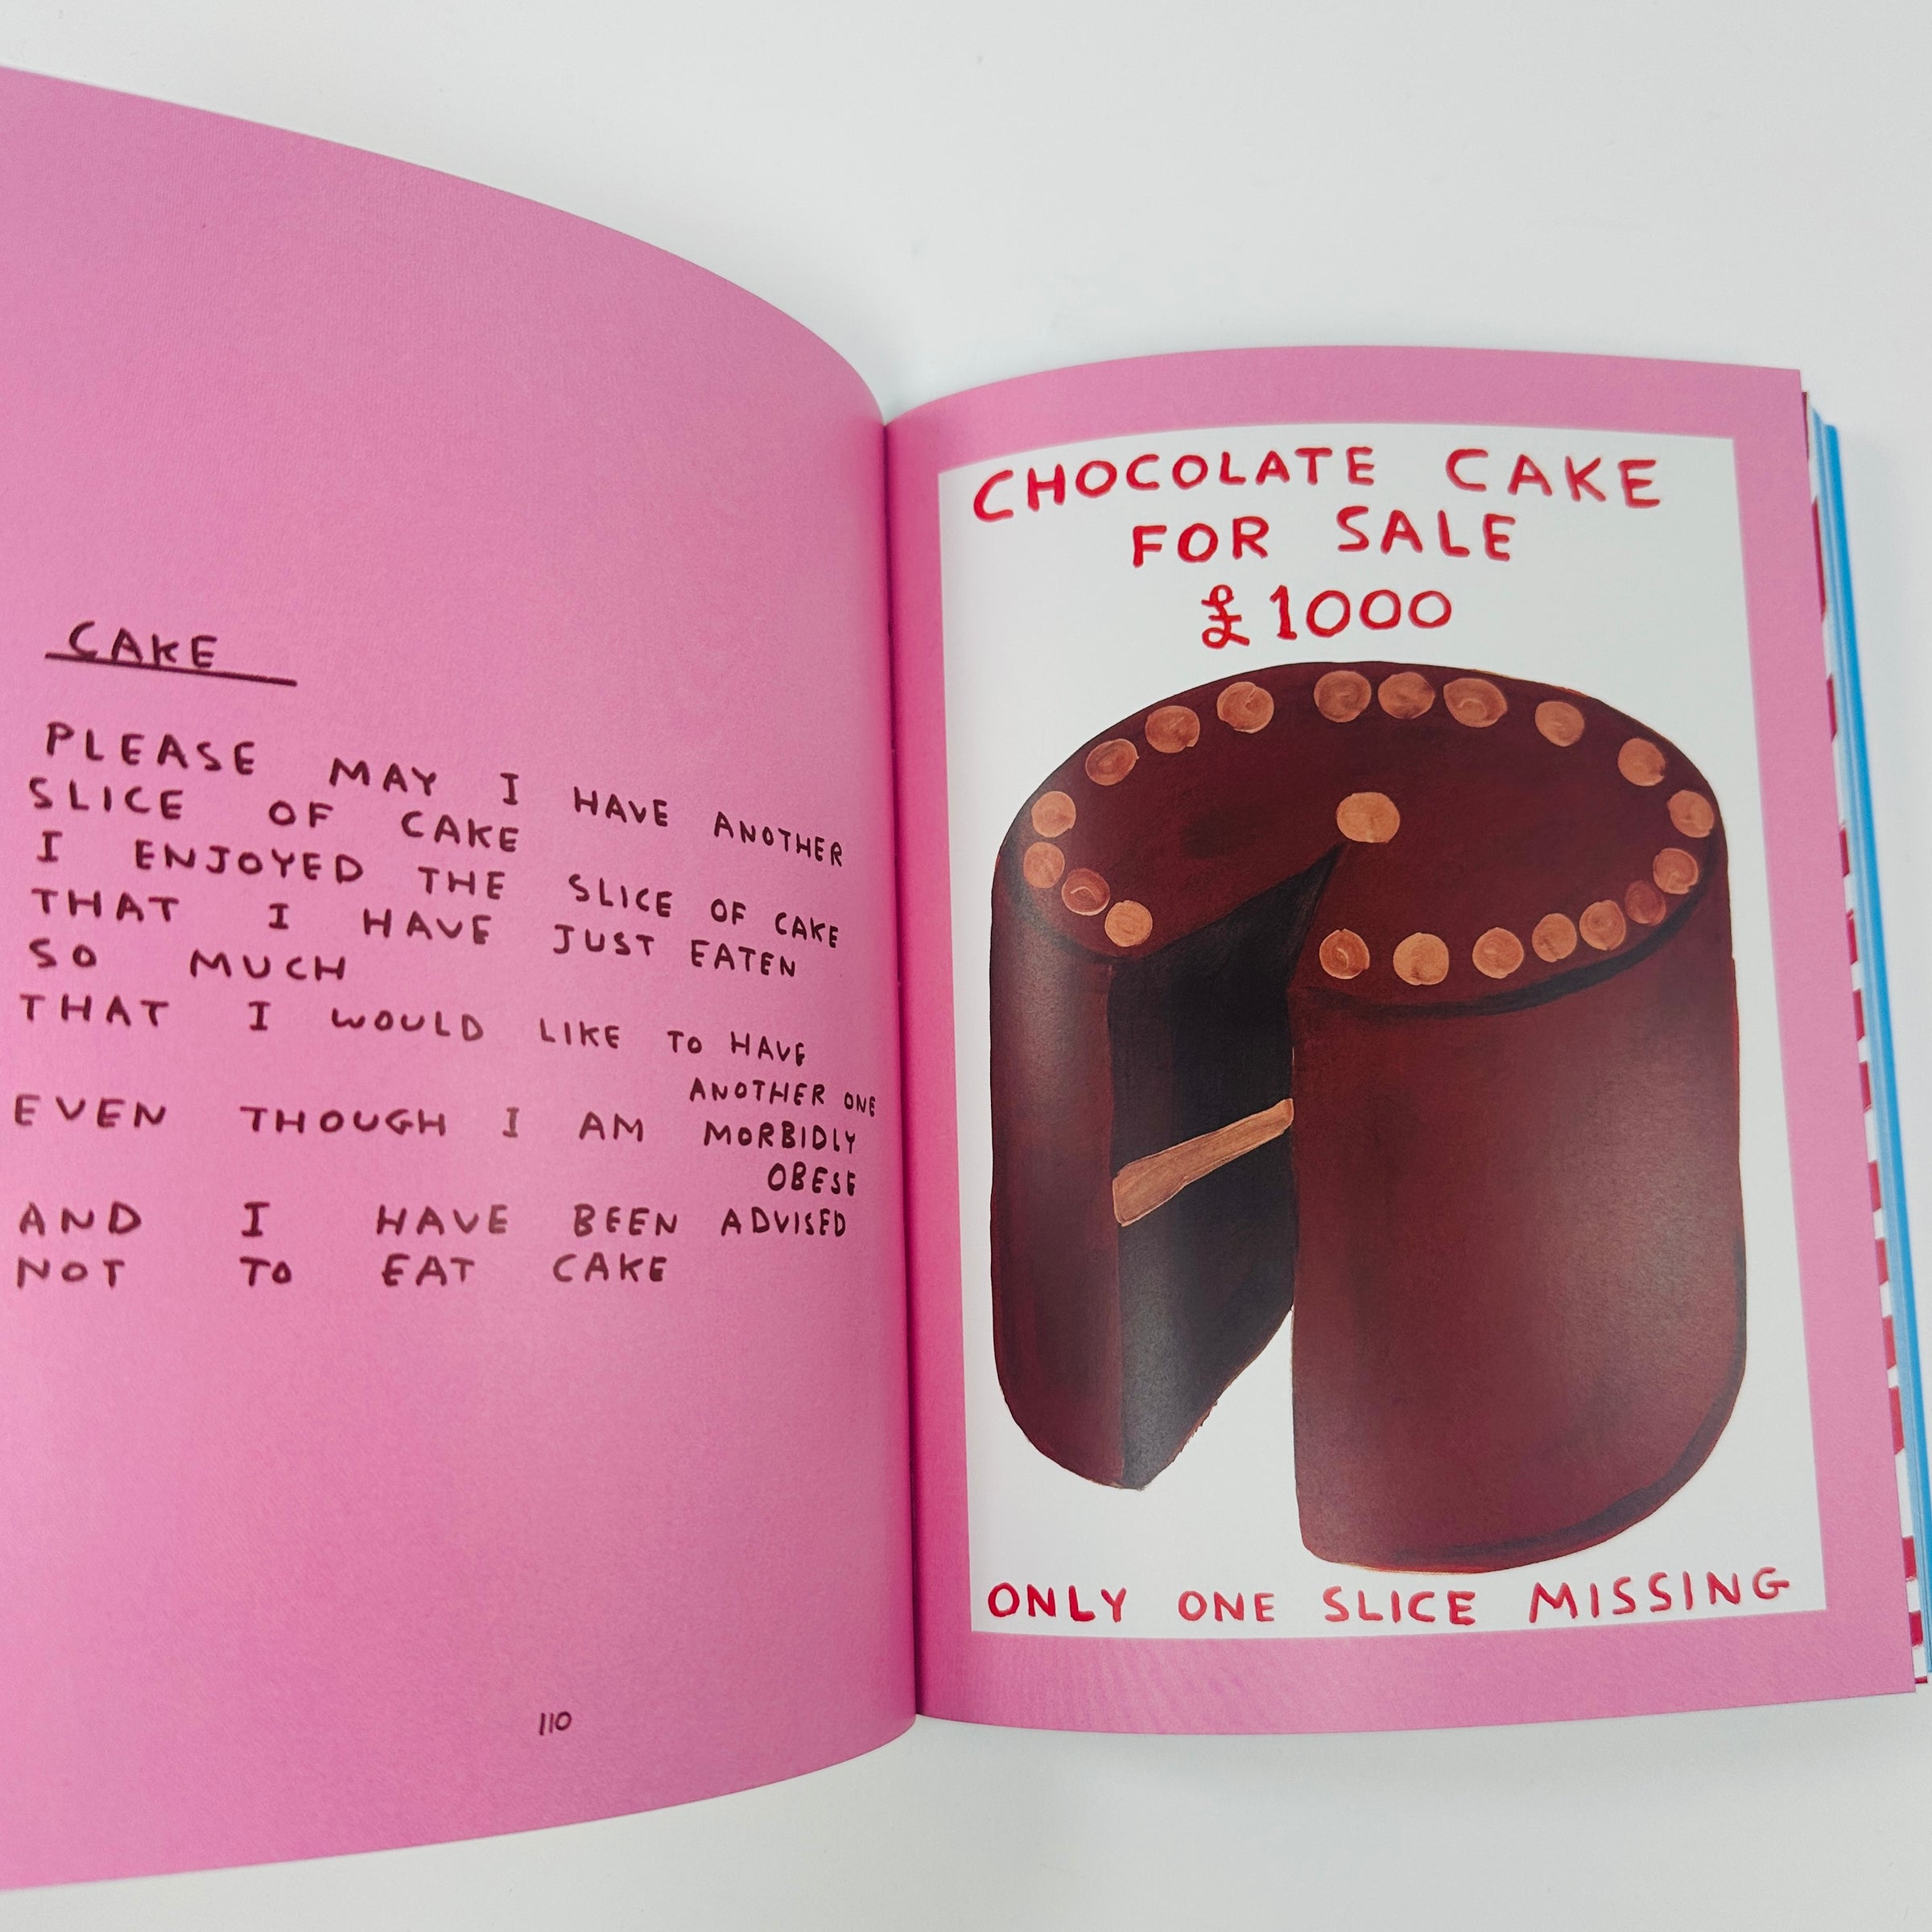 CAKE
PLEASE MAY I HAVE ANOTHER
SLICE OF CAKE
I ENJOYED THE SLICE OF CAKE
THAT I HAVE JUST EATEN
SO MUCH
THAT I WOULD LIKE TO HAVE
ANOTHER ONE
EVEN THOUGH I AM MORBIDLY
OBESE
AND I HAVE BEEN ADVISED
NOT TO EAT CAKE
110
CHOCOLATE CAKE
FOR SALE
£1000
ONLY ONE SLICE MISSING